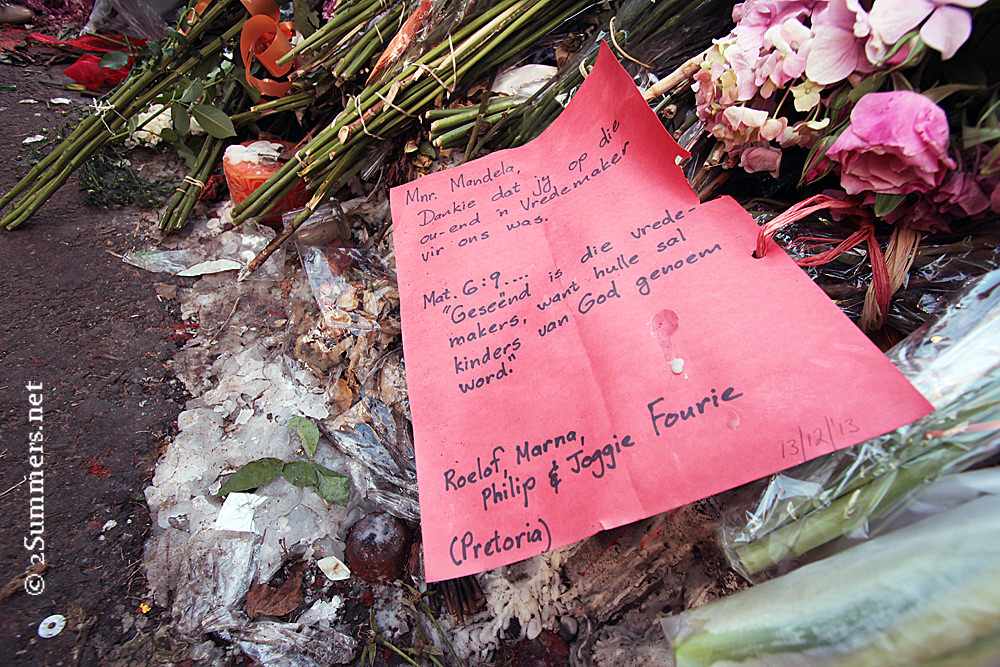 Mnr. Mandela,
Dankie dat jy op die
ou-end 'n Vredemaker
vir ons was.
Mat. 6:9...
"Geseënd is die vrede-
makers, want hulle sal
kinders van God genoem
word."
Roelof, Marna,
Philip & Joggie Fourie
(Pretoria)
13/12/13
© 2Summers.net